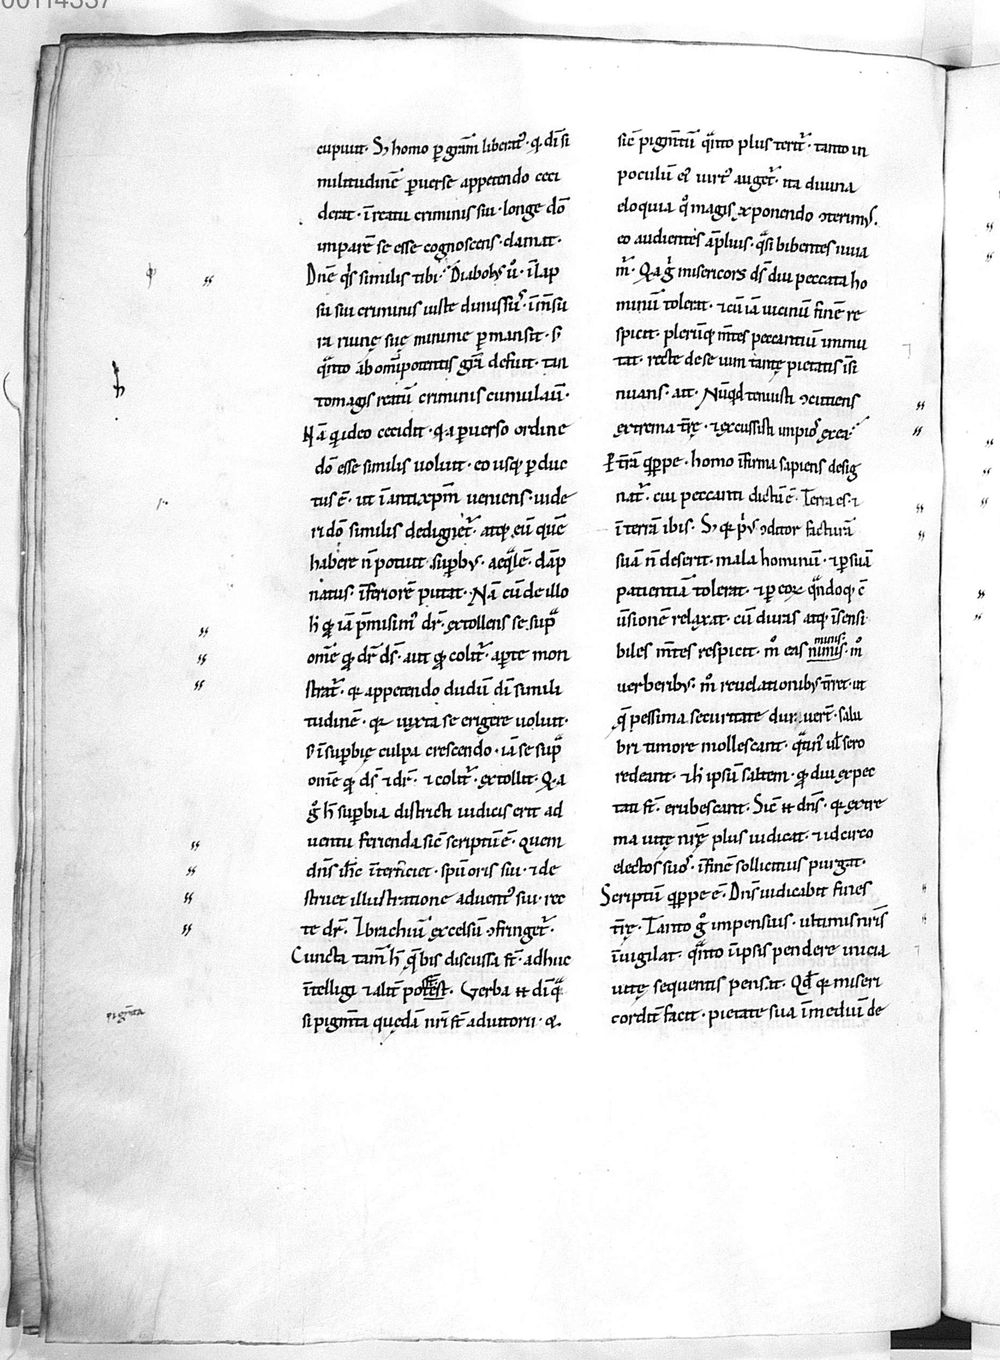 00114337
cupiuit. Sꝫ homo ꝑ grām liberat᷑. q̇ dī si
militudinē ꝑuerse appetendo ceci
derat. ī reatu criminis sui. longe dō
imparē se esse cognoscens. clamat.
Dn̄e q̄s similis tibi. Diabolꝰ ů. ī lap
su sui criminis iuste dimissꝰ. ī m̄su
ra ruinę suę minime ꝑmansit. s̄
q̄nto ab om̄ipotentis gr̄a defuit. tan
tomagis reatū criminis cumulauit.
Nā q̇ ideo cecidit. q̇a ꝑuerso ordine
dō esse similis uoluit. eo usqꝫ ꝑduc
tus ē. ut ī antixp̄m ueniens. uide
ri dō similis dedignet᷑. atqꝫ eū quē
habere n̄ potuit supbꝰ. aeq̄lē. dāp
natus. īferiorē putat. Nā cū de illo
h̄ qđ iā p̄misimꝰ dr̄. extollens se sup̄
om̄e qđ dr̄ ds̄. aut qđ colit᷑. aꝑte mon
strat᷑. q̇a appetendo dudū dī simili
tudinē. q̇a iuxta se erigere uoluit.
s̄ ī supbię culpa crescendo. iā se sup̄
om̄e qđ ds̄ ⁊ dr̄. ⁊ colit᷑. extollit. Q̇a
g̊ h̄ supbia districti iudicis erit ad
uentu ferienda sic̄ scriptū ē. Quem
dn̄s ih̄c īterficiet. spū oris sui. ⁊ de
struet illustratione aduentꝰ sui. rec
te dr̄. Ibrachiū excelsū ɔfringet᷑.
Cuncta tam̄ h̄ q̄ bis discussa s̄t. adhuc
ītelligi ⁊ alit̄ potest. Verba n̄ dī q̄
si pigm̄ta quedā nr̄i s̄t adiutorii. q̇.
pigm̄ta
sic̄ pigm̄tū q̄nto plus terit᷑. tanto in
poculū eiꝰ uirtꝰ auget᷑. ita diuina
eloquia q̊ magis exponendo ɔterimꝰ.
eo audientes āplius. q̄si bibentes iuua
mꝰ. Q̇a g̊ misericors ds̄ diu peccata ho
minū tolerat. ⁊ cū iā uicinū finē re
spicit. plerūqꝫ m̄tes peccantiū immu
tat. recte de se uim tantę pietatis īsi
nuans. ait. Nūqđ tenuisti ɔcutiens
extrema tr̄ę. ⁊ excussisti impios ex ea.
P tr̄ā q̄ppe. homo īfirma sapiens desig
nat᷑. cui peccanti dictū ē. Terra es. ⁊
ī terrā ibis. Sꝫ q̇a pꝰ ɔditor facturā
suā n̄ deserit. mala hominū. ⁊ ꝑ suā
patientiā tolerat. ⁊ ꝑ eoꝝ q̄ndoqꝫ ɔ̄
ūsionē relaxat. cū duras atqꝫ īsensi
biles m̄tes respicit. m̊ eas nimis. m̊
munis
uerberibꝰ. m̊ reuelationibꝰ t̄ret. ut
q̄ pessima securitate duruert̄. salu
bri timore mollescant. q̄tinꝰ uł sero
redeant. ⁊ h̄ ipsū saltem. qđ diu expec
tati s̄t. erubescant. Sic̄ n̄ dn̄s. q̇a extre
ma uitę nr̄ę plus iudicat. ⁊ idcirco
electos suos. ī finē sollicitius purgat.
Scriptū q̄ppe ē. Dn̄s iudicabit fines
tr̄ę. Tanto g̊ impensius. ultimis nr̄is
īuigilat. q̄nto ī ipsis pendere inicia
uitę sequentis pensat. Qđ q̇a miseri
cordit̄ facit. pietate sua ī mediū de